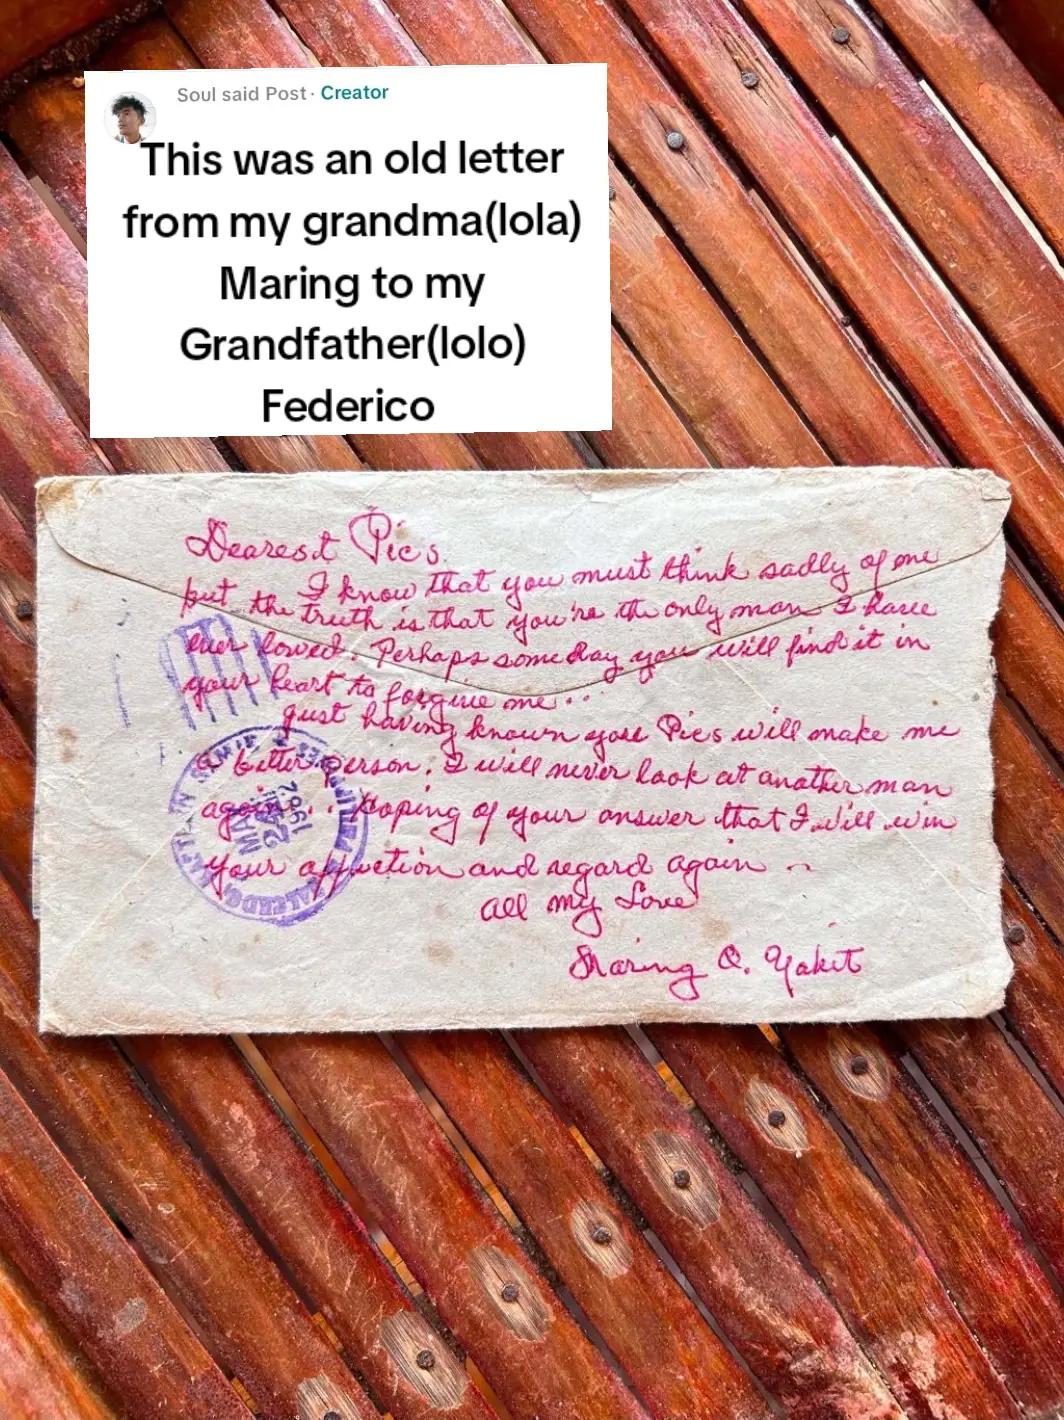 Soul said Post · Creator
This was an old letter
from my grandma(lola)
Maring to my
Grandfather(lolo)
Federico
Dearest Pics
I know that you must think sadly of me
but the truth is that you're the only man I have
ever loved. Perhaps someday you will find it in
your heart to forgive me...
Just having known you Pics will make me
a better person. I will never look at another man
again... Hoping of your answer that I will win
your affection and regard again
all my Love
Maring Q. Yakit
MAR
24
1982